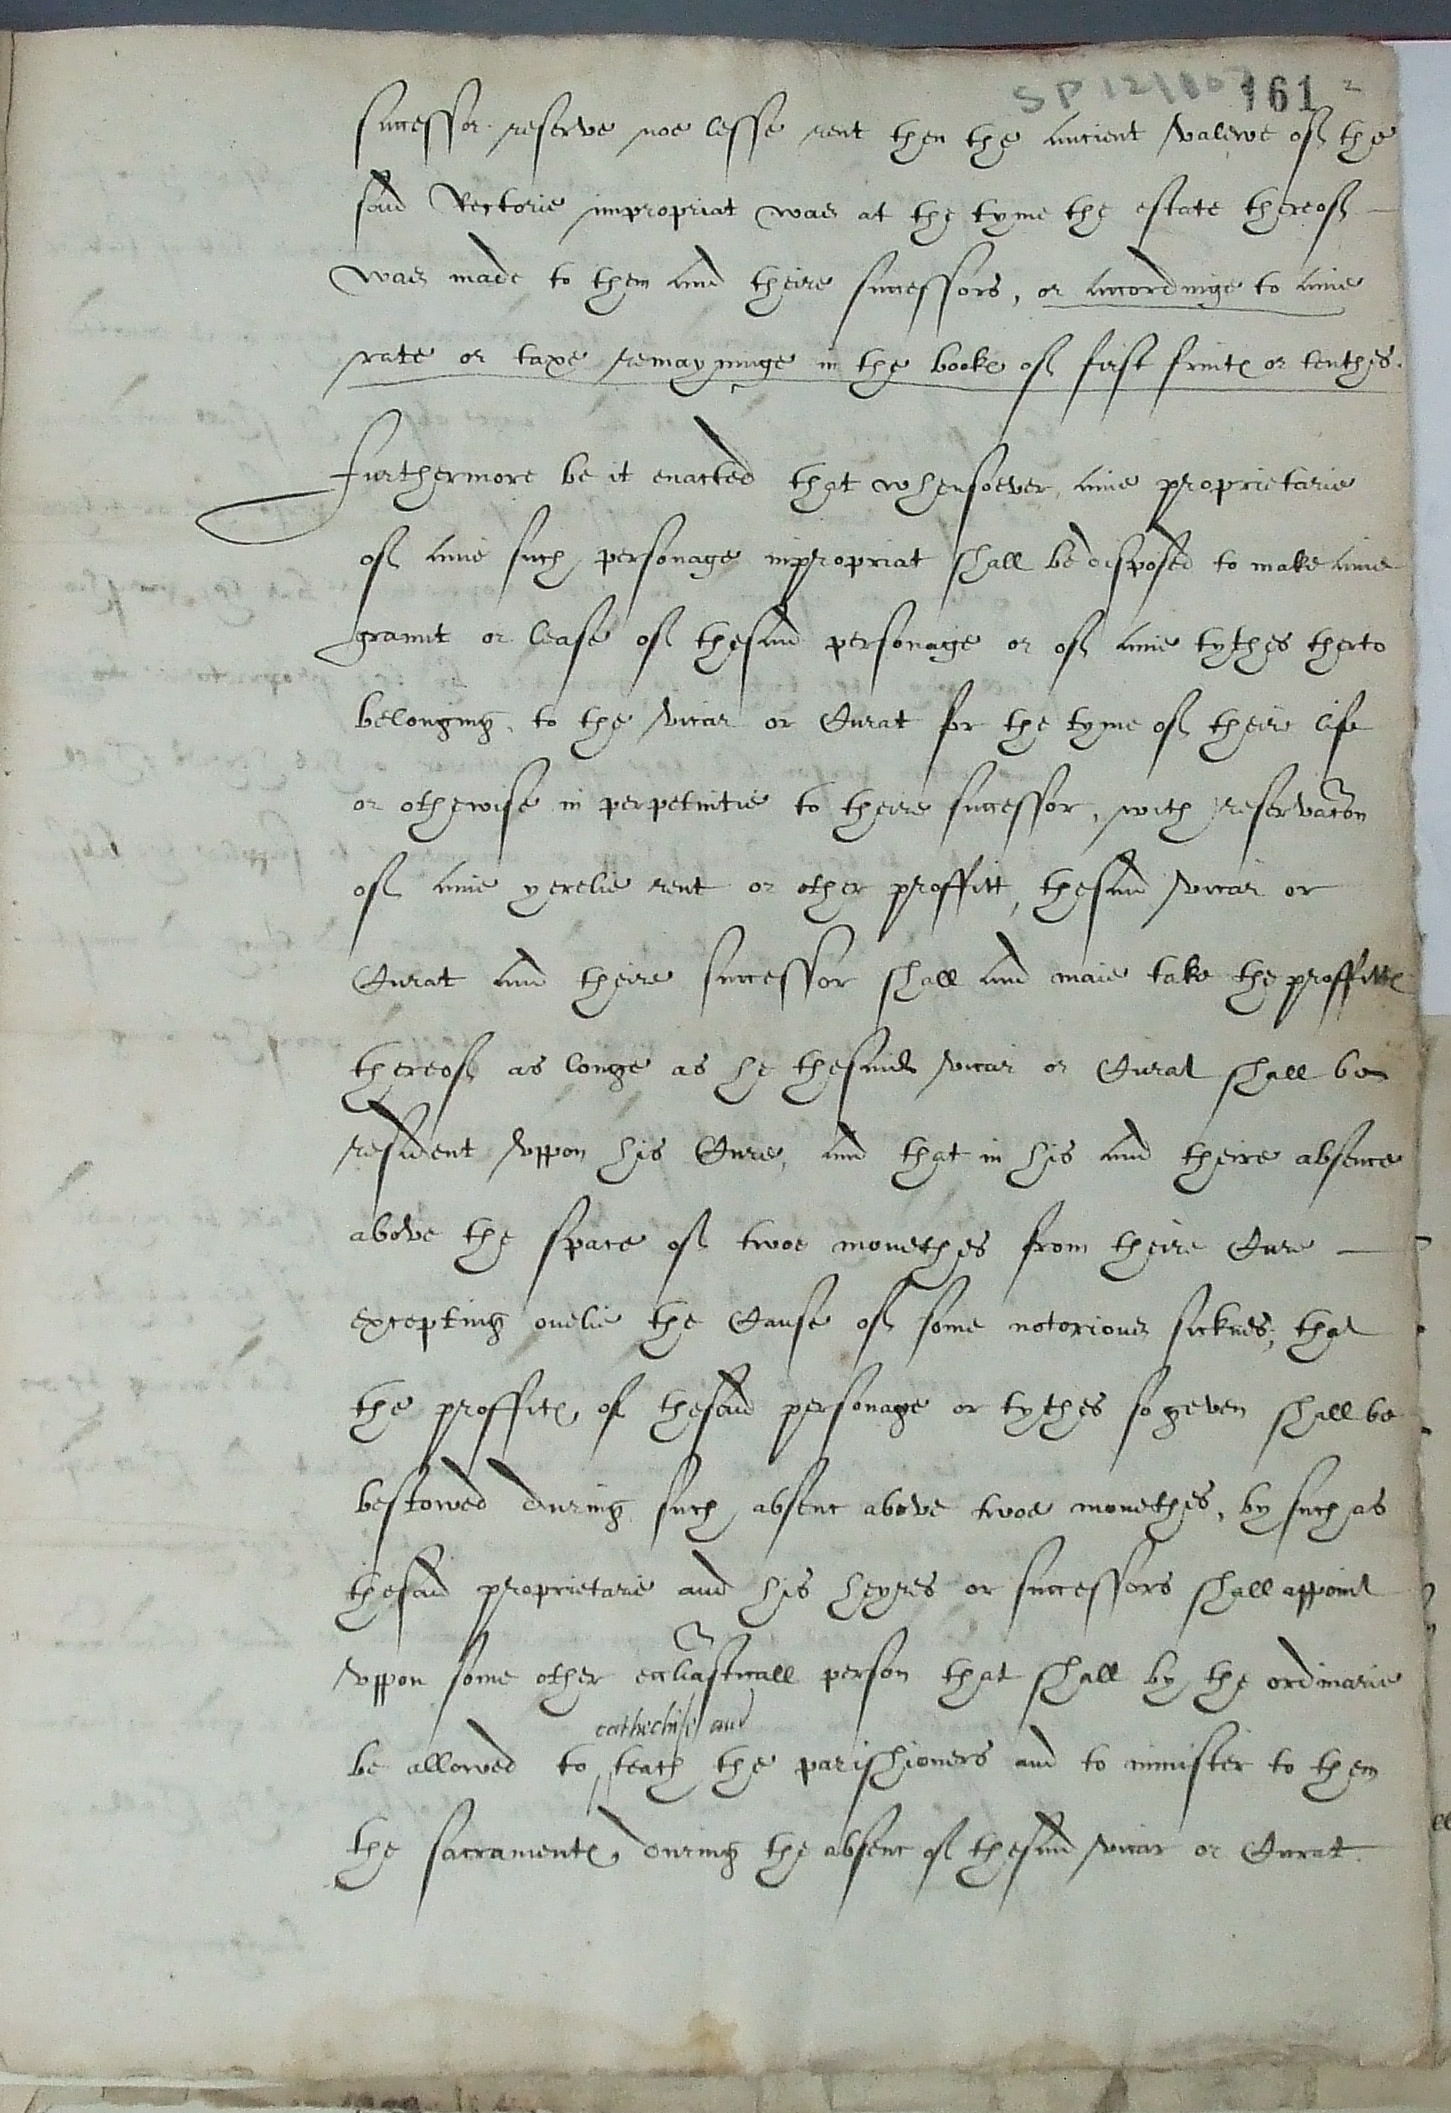 SP 12/107 161 2
successor reserve noe lesse rent then the Auncient valewe off the
said Rectorie impropriat was at the tyme the estate thereoff
was made to them And theire successors, or Accordinge to Anie
rate or taxe remayninge in the booke off first fruites or tenthes.
Furthermore be it enacted that whensoever Anie proprietarie
off Anie such personage inpropriat shall be disposed to make Anie
graunt or lease off thesaid personage or off Anie tythes therto
belonging, to the vicar or Curat for the tyme off theire life
or othewise in perpetuitie to theire successor, with reservacon
off Anie yerelie rent or other proffitt, thesaid vicar or
Curat And theire successor shall And maie take the proffittes
thereoff as longe as he thesaid vicar or Curat shall be
resident vppon his Cure, And that in his And theire absence
above the space off twoe monethes from theire Cure
excepting onelie the Cause off some notorious sicknes, that
the proffites of thesaid personage or tythes so geven shall be
bestowed during such absenc above twoe monethes, by such as
thesaid proprietarie and his heyres or successors shall appoint
vppon some other eccliasticall person that shall by the ordinarie
cathechise and
be allowed to teach the parishioners and to minister to them
the sacramentes during the absenc off thesaid vicar or Curat.